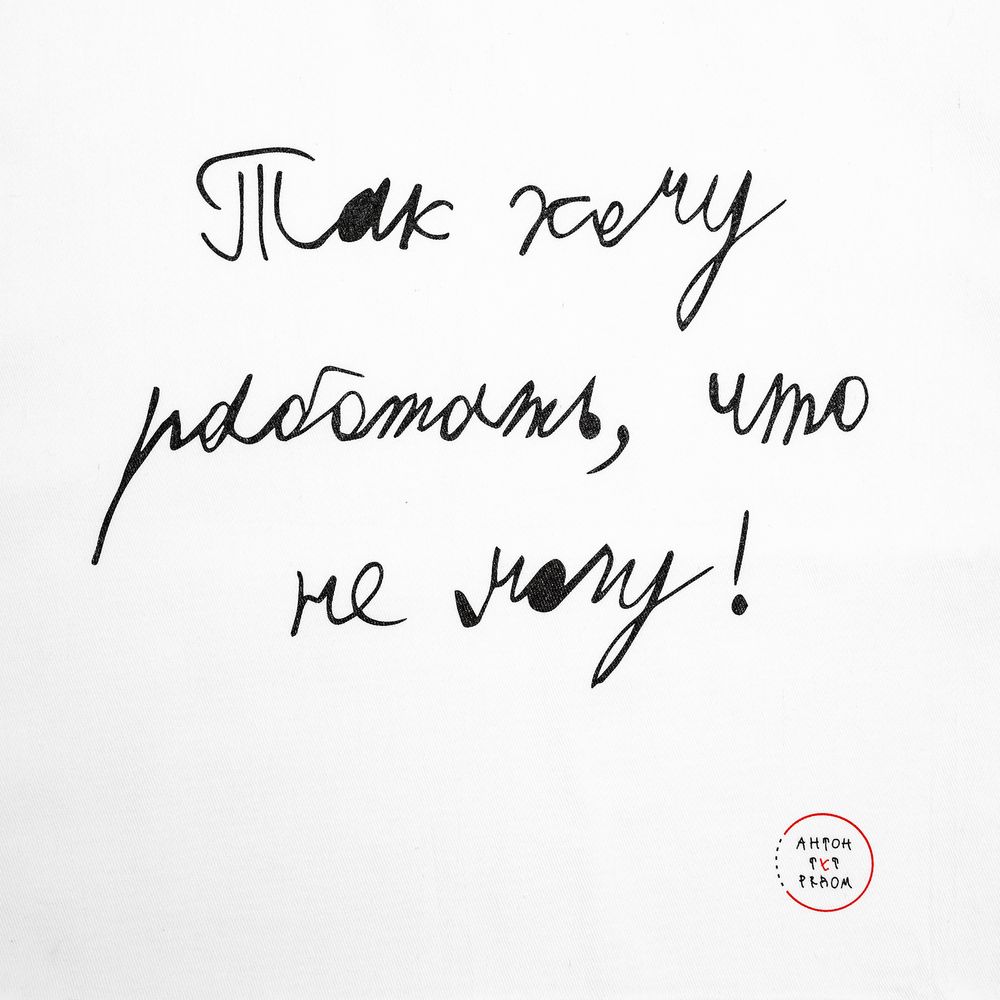 Так хочу
работать, что
не могу!
АНТОН
ТУТ
РЯДОМ